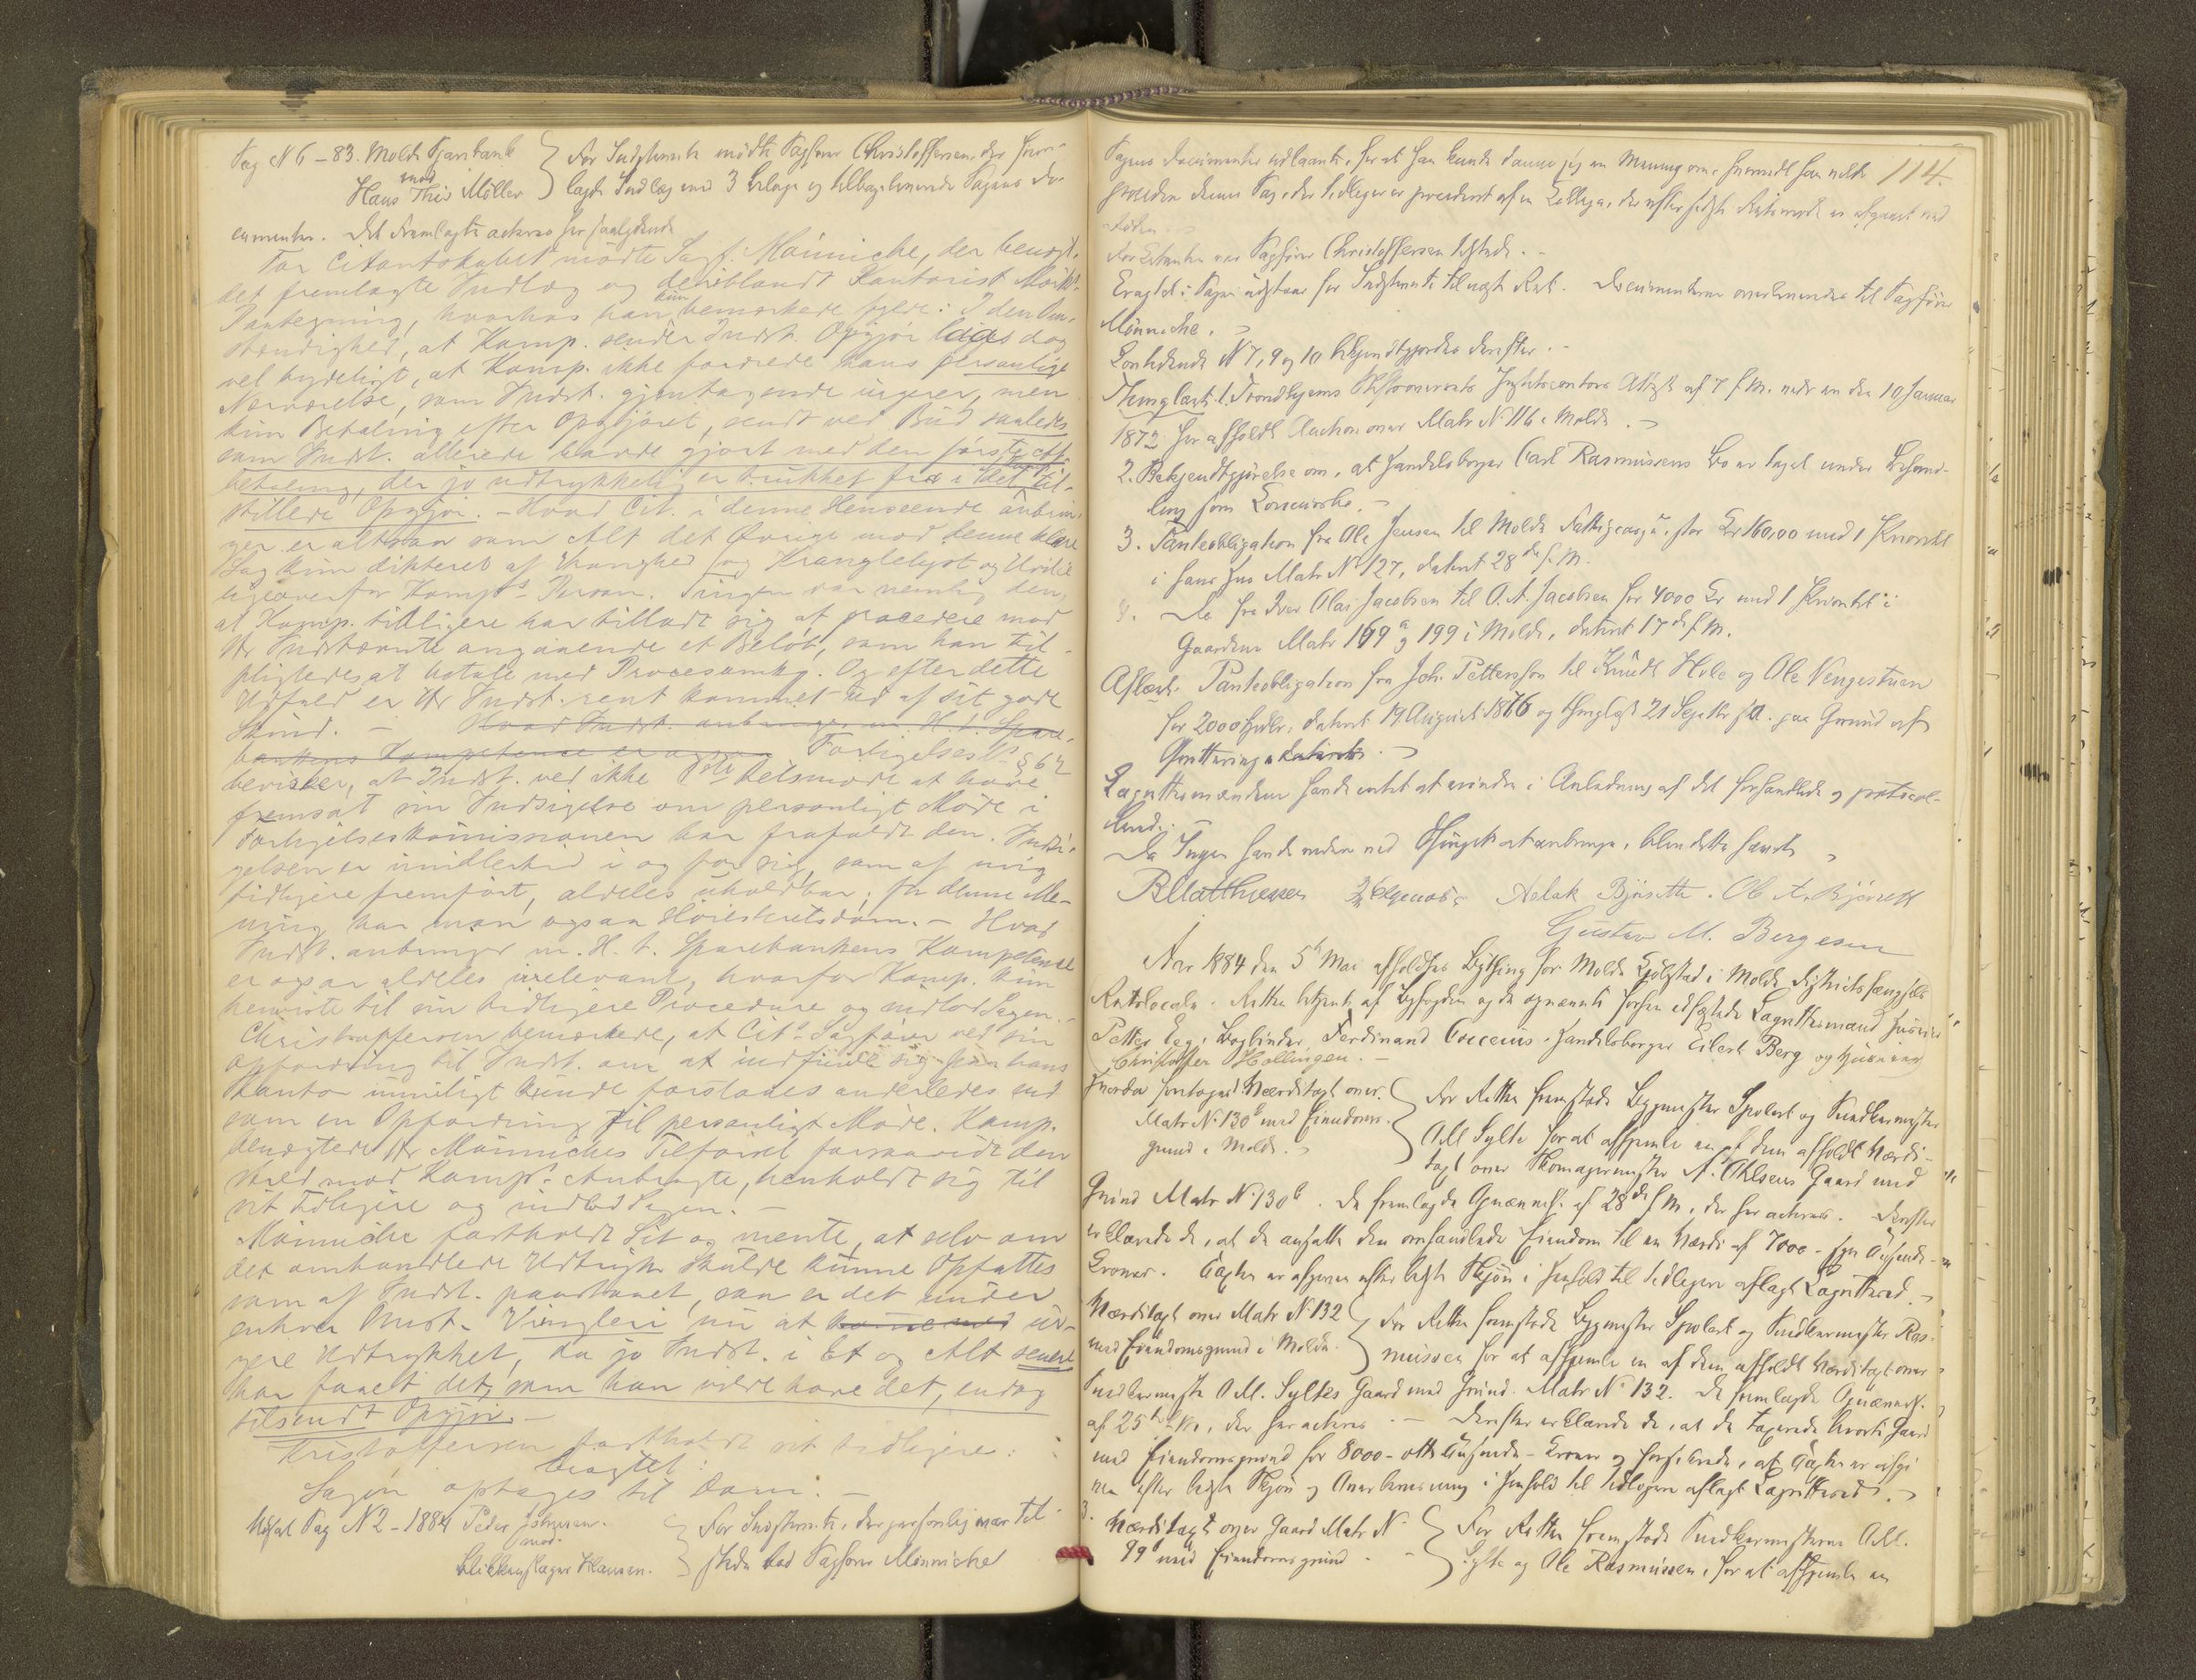 Sag N 6 – 83. Molde Sparebank
mod
Hans Thiis Møller
For Indstevnte mødte Sagfører Christoffersen, der frem-
lagde Indlæg med 3 Bilage og tilbageleverede Sagens Do-
cumenter. Det Fremlagte acteres her saalydende
For Citantskabet mødte Sagf. Münniche, der benægt-
det fremlagte Indlæg og deriblandt Kantorist
Paategning, hvorhos han kun bemærkede
stændighed, at Komp. sendte Indst. Opgjør laaes dog
vel tydeligt, at Komp. ikke fordrede hans personlige
Nærværelse, som Indst. gjentagende urgerer, men
kun Betaling efter Opgjøret, sendt ved Bud saaledes
som Indst. allerede havde gjort med den første Af-
betaling, der jo udtrykkelig er trukket fra i det til-
stillede Opgjør. – Hvad Cit. i denne Henseende anbrin-
ger er altsaa som Alt det Øvrige mod denne klare
Sag kun dikteret af Tranghed og Kranglelyst og Uvilie
ligeoverfor Komp.s Person. Tingen var nemlig den,
at Komp. tidligere har tilladt sig at procedere mod
Hr Indstævnte angaaende et Beløb, som han til-
pligtedes at betale med Procesomkg. Og efter dette
Udfald er Hr Indst. rent kommet ud af sit gode
Skind. – Hvad Indst. anbringer m. H. t. Spare-
bankens Kompetence er ogsaa Forligelsesl. § 62
beviser, at Indst. ved ikke i Retsmøde at have
fremsat sin Indsigelse om personligt Møde i
Forligelseskommissionen har frafaldt den. Indsi-
gelsen er imidlertid i og for sig, som af mig
tidligere fremført, aldeles uholdbar; for denne Me-
ning har man ogsaa Høiesteretsdom. – Hvad
Indst. anbringer m. H. t. Sparebankens Kompetence
er ogsaa aldeles irrelevant, hvorfor Komp. kun
henviste til sin tidligere Procedure og indlod Sagen. –
Christoffersen bemærkede, at Cit.s Sagfører ved sin
Opfordring til Indst. om at indfinde sig paa hans
Kontor umuligt kunde forstaaes anderledes end
som en Opfordring til personligt Møde. Komp.
benægtede Hr Münniches Tilførsel forsaavidt den
stred mod Komp.s Anbragte, henholdt sig til
sit tidligere og indlod Sagen. –
Münniche fastholdt Sit og mente, at selv om
det omhandlede Udtryk skulde kunne Opfattes
som af Indst. paastaaet, saa er det under
enhver Omst. Vingleri nu at komme med ur-
gere Udtrykket, da jo Indst. i Et og Alt senere
har faaet det, som han vilde have det, endog
tilsendt Opgjør. –
Kristoffersen fastholdt sit tidligere:
Eragtet:
Sagen optages til Dom. –
Sag N 2 – 1884 Peder
mod
Blikkenslager Hansen.
For Indstevnte, der personlig var til
stede bad Sagfører Münniche
114.
Sagens Documenter udlaante, for at han kunde danne sig en Mening om, hvorvidt han vilde
procedere denne Sag, der tidligere er procederet af en Collega, der efter sidste Retsmøde er afgaaet ved
Døden. –
For Citanten var Sagfører Christoffersen tilstede. –
Eragtet: Sagen udstaar for Indstevnte til næste Ret. Documenterne overleveredes til Sagfører
Münniche.
Løsøre N 7, 9 og 10 bekjendtgjordes derefter. –
Thinglæst 1. Trondhjems Attest af 7 f. M. under en den 10 Januar
1872 her afholdt Auction over Matr N 116 i Molde.
2. Bekjendtgjørelse om, at Handelsborger Carl Rasmussens Bo er taget under Behand-
ling som Concursbo. –
3. Panteobligation fra Ole Jensen til Molde Fattigcasse, stor Kr 160,00 med 1 Prioritet
i hans Hus Matr N 127, dateret 28de f. M.
4. Do fra Iver Olai Jacobsen til O. A. Jacobsen for 4000 Kr med 1 Prioritet i
Gaardene Matr 169 a og 199 i Molde, dateret 17de f. M.
Aflæst: Panteobligation fra Joh. Pettersson til Knudt Hole og Ole Vengestuen
for 2000 Spdlr, dateret 19 August 1876 og thinglæst 21 Septbr s. a. paa Grund af
Qvittering
Lagrettemændene havde intet at erindre i Anledning af det Forhandlede og protocol-
lerede. –
Da Ingen havde videre ved Thinget at anbringe, blev dette hævet.
Aslak Bjørseth. Ole A. Bjørseth
Gustav M. Bergesen
Aar 1884 den 5te Mai afholdtes Bything for Molde Kjøbstad i Molde Districtsfængsels
Retslocale. Retten betjent af Byfogden og de opnævnte forhen edfæstede Lagrettesmænd
Petter Eeg, Bogbinder Ferdinand Cocceius, Handelsborger Eilert Berg og
Christoffer Hollingen. –
Hvorda foretoges Værditaxt over
Matr N 130 b med Eiendoms-
grund i Molde.
For Retten fremstod Bygmester Spolert og Snedkermester
O M Sylte for at afhjemle en af dem afholdt Værdi-
taxt over Skomagermester A. Ohlsens Gaard med
Grund Matr N 130 b. De fremlagde Opnævnelse af 28de f. M., der her acteres. Derefter
erklærede de, at de ansatte den omhandlede Eiendom til en Værdi af 7000 – syv Tusinde –
Kroner. Taxten er afgiven efter bedste Skjøn i Henhold til tidligere aflagt Lagretteed. –
Værditaxt over Matr N 132
med Eiendomsgrund i Molde.
For Retten fremstod Bygmester Spolert og Snedkermester Ras-
mussen for at afhjemle en af dem afholdt Værditaxt over
Snedkermester O M. Syltes Gaard med Grund. Matr N 132. De fremlagde Opnævnelse
af 25de f. M., der her acteres. – Derefter erklærede de, at de taxerede Gaard
med Eiendomsgrund for 8000 – otte Tusinde – Kroner og forsikrede, at Taxten er afgi-
ven efter bedste Skjøn og Overbevisning i Henhold til tidligere aflagt Lagretteed. –
3. Værditaxt over Gaard Matr N
99 b med Eiendomsgrund. –
For Retten fremstod Snedkermesterne O M.
Sylte og Ole Rasmussen, for at afhjemle en